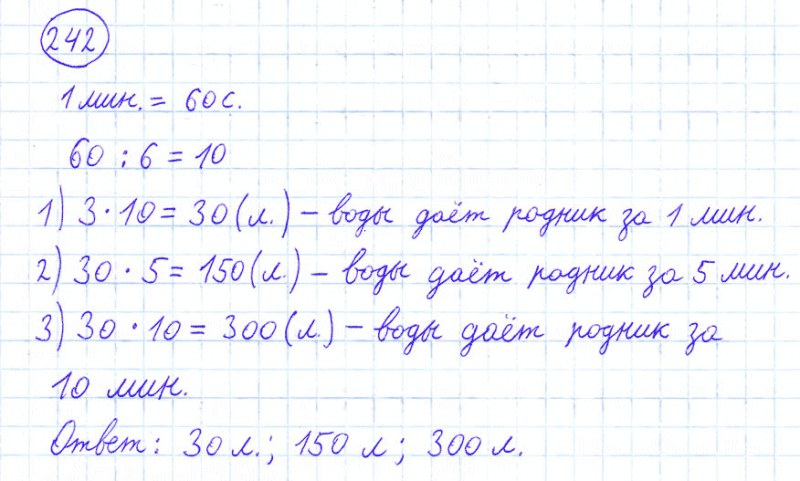 242
1 мин. = 60 с.
60 : 6 = 10
1) 3 · 10 = 30 (л.) – воды даёт родник за 1 мин.
2) 30 · 5 = 150 (л.) – воды даёт родник за 5 мин.
3) 30 · 10 = 300 (л.) – воды даёт родник за
10 мин.
Ответ: 30 л.; 150 л; 300 л.